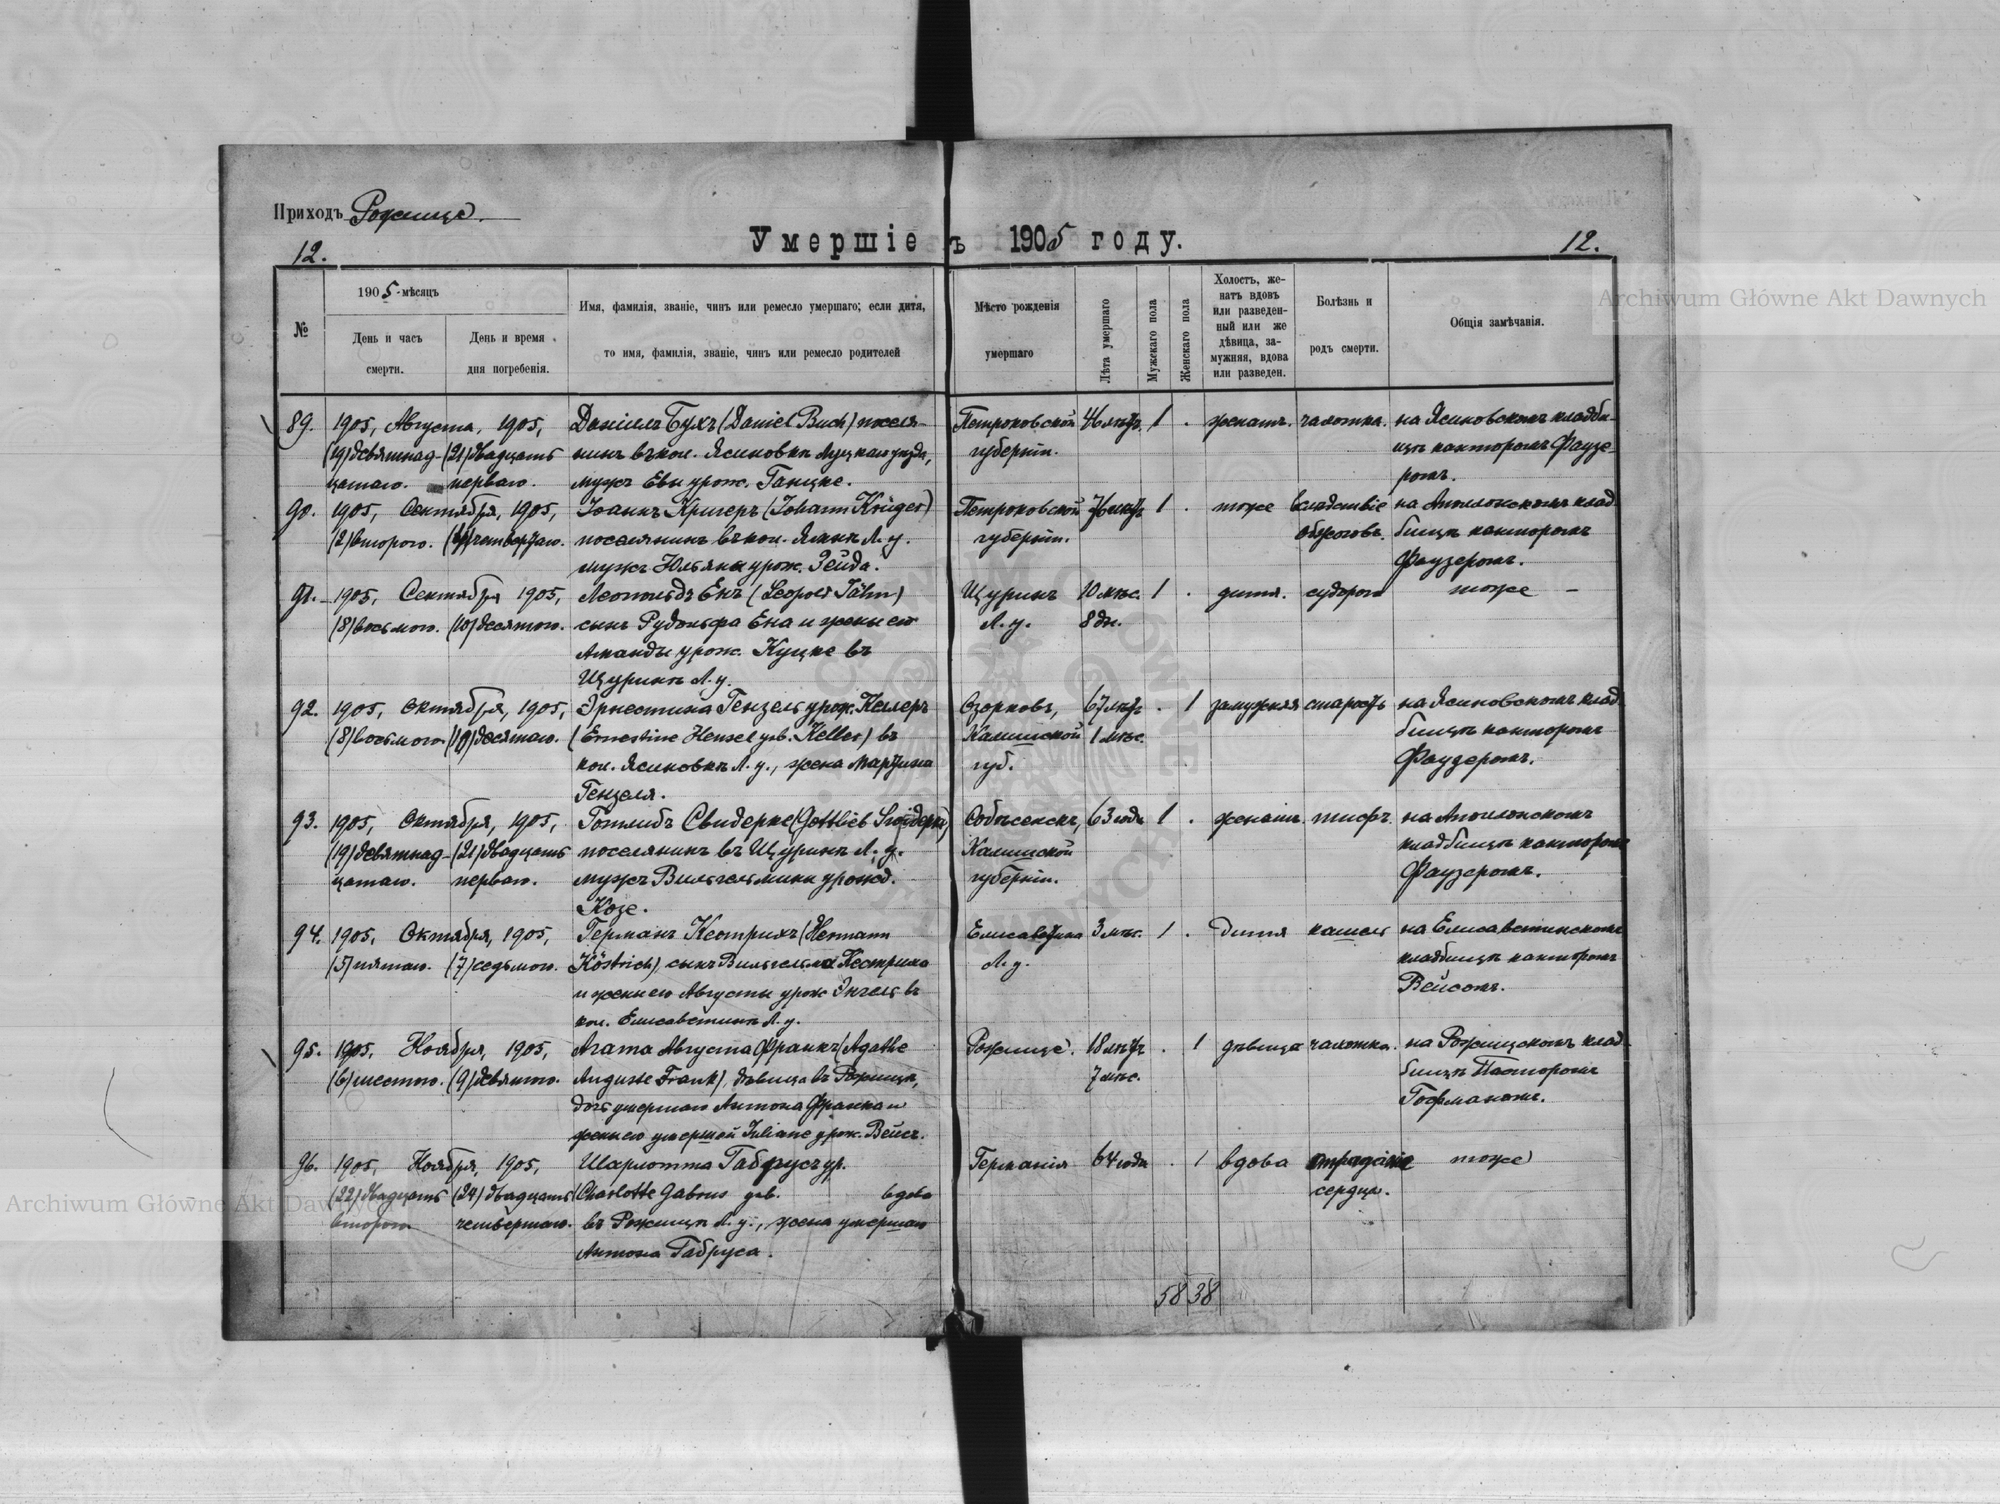 Приходъ Рожище.
Умершіе въ 1905 году.
12.
12.
№
1905 мѣсяцъ
День и часъ смерти.
День и время дня погребенія.
Имя, фамилія, званіе, чинъ или ремесло умершаго; если дитя,
то имя, фамилія, званіе, чинъ или ремесло родителей
Мѣсто рожденія
умершаго
Лѣта умершаго
Мужскаго пола
Женскаго пола
Холостъ, же-
натъ вдовъ
или разведен-
ный или же
дѣвица, за-
мужняя, вдова
или разведен.
Болѣзнь и
родъ смерти.
Общія замѣчанія.
89. 1905, Августа, 1905, Даніилъ Бухъ (Daniel Buch) поселя- Петроковской 46 лѣтъ. 1 . женатъ. чахотка. на Ясиновскомъ кладби-
(19) девятнад- (21) двадцать нинъ въ кол. Ясиновкѣ Луцкаго уѣзда, губерніи. щѣ канторомъ Фаузе-
цатаго. перваго. мужъ Евы урож. Ганцке. ромъ.
90. 1905, Сентября, 1905, Іоаннъ Кригеръ (Johann Krüger) Петроковской 76 лѣтъ 1 . тоже вслѣдствіе на Аполонскомъ клад
(2) второго. (4) четвертаго. поселянинъ въ кол. Л. у. губерніи. обжоговъ. бищѣ канторомъ
мужъ Юльяны урож. Зейда. Фаузеромъ.
91. 1905, Сентября 1905, Леопольдъ Енъ (Leopold Jähn) Щуринъ 10 мѣс. 1 . дитя. судороги тоже –
(8) восьмого. (10) десятого. сынъ Рудольфа Ена и жены его Л. у. 8 дн.
Аманды урож. Куцке въ
Щуринѣ Л. у.
92. 1905, Октября, 1905, Эрнестина Гензель урож. Келлеръ Озорковъ, 67 лѣтъ . 1 замужняя старость на Ясиновскомъ клад
(8) восьмого (10) десятаго. (Ernestine Hensel geb. Keller) въ Калишской 1 мѣс. бищѣ канторомъ
кол. Ясиновкѣ Л. у., жена Мартина губ. Фаузеромъ.
Гензеля.
93. 1905, Октября, 1905, Готлибъ Свидерке (Gottlieb Swiderke) 63 года 1 . женатъ. тифъ. на Аполонскомъ
(19) девятнад- (21) двадцать поселянинъ въ Щуринѣ Л. у. Калишской кладбищѣ канторомъ
цатаго. перваго. мужъ Вильгельмины урожд. губерніи. Фаузеромъ.
Козе.
94. 1905, Октября, 1905, Германъ Кестрихъ (Hermann Елисаветинъ 3 мѣс. 1 . дитя кашель на Елисаветинскомъ
(5) пятаго. (7) седьмого. Köstrich), сынъ Вильгельма Кестриха Л. у. кладбищѣ канторомъ
и жены его Августы урож. Энгель въ Вейсомъ.
кол. Елисаветинѣ Л. у.
95. 1905, Ноября, 1905, Агата Августа Франкъ (Agathe Рожище. 18 лѣтъ . 1 дѣвица чахотка. на Рожищскомъ клад
(6) шестого. (9) девятого. Auguste Frank), дѣвица въ Рожищѣ, 7 мѣс. бищѣ Пасторомъ
дочь умершаго Антона Франка и Гофманомъ.
жены его умершей Juliane урож. Вейсъ.
96. 1905, Ноября, 1905, Шарлотта Габрусъ ур. Германія 64 года . 1 вдова страданіе тоже
(22) двадцать (24) двадцать (Charlotte Gabrus geb. вдова сердца.
второго четвертаго. въ Рожищѣ Л. у., жена умершаго
Антона Габруса.
58 38
Archiwum Główne Akt Dawnych
Archiwum Główne Akt Dawnych